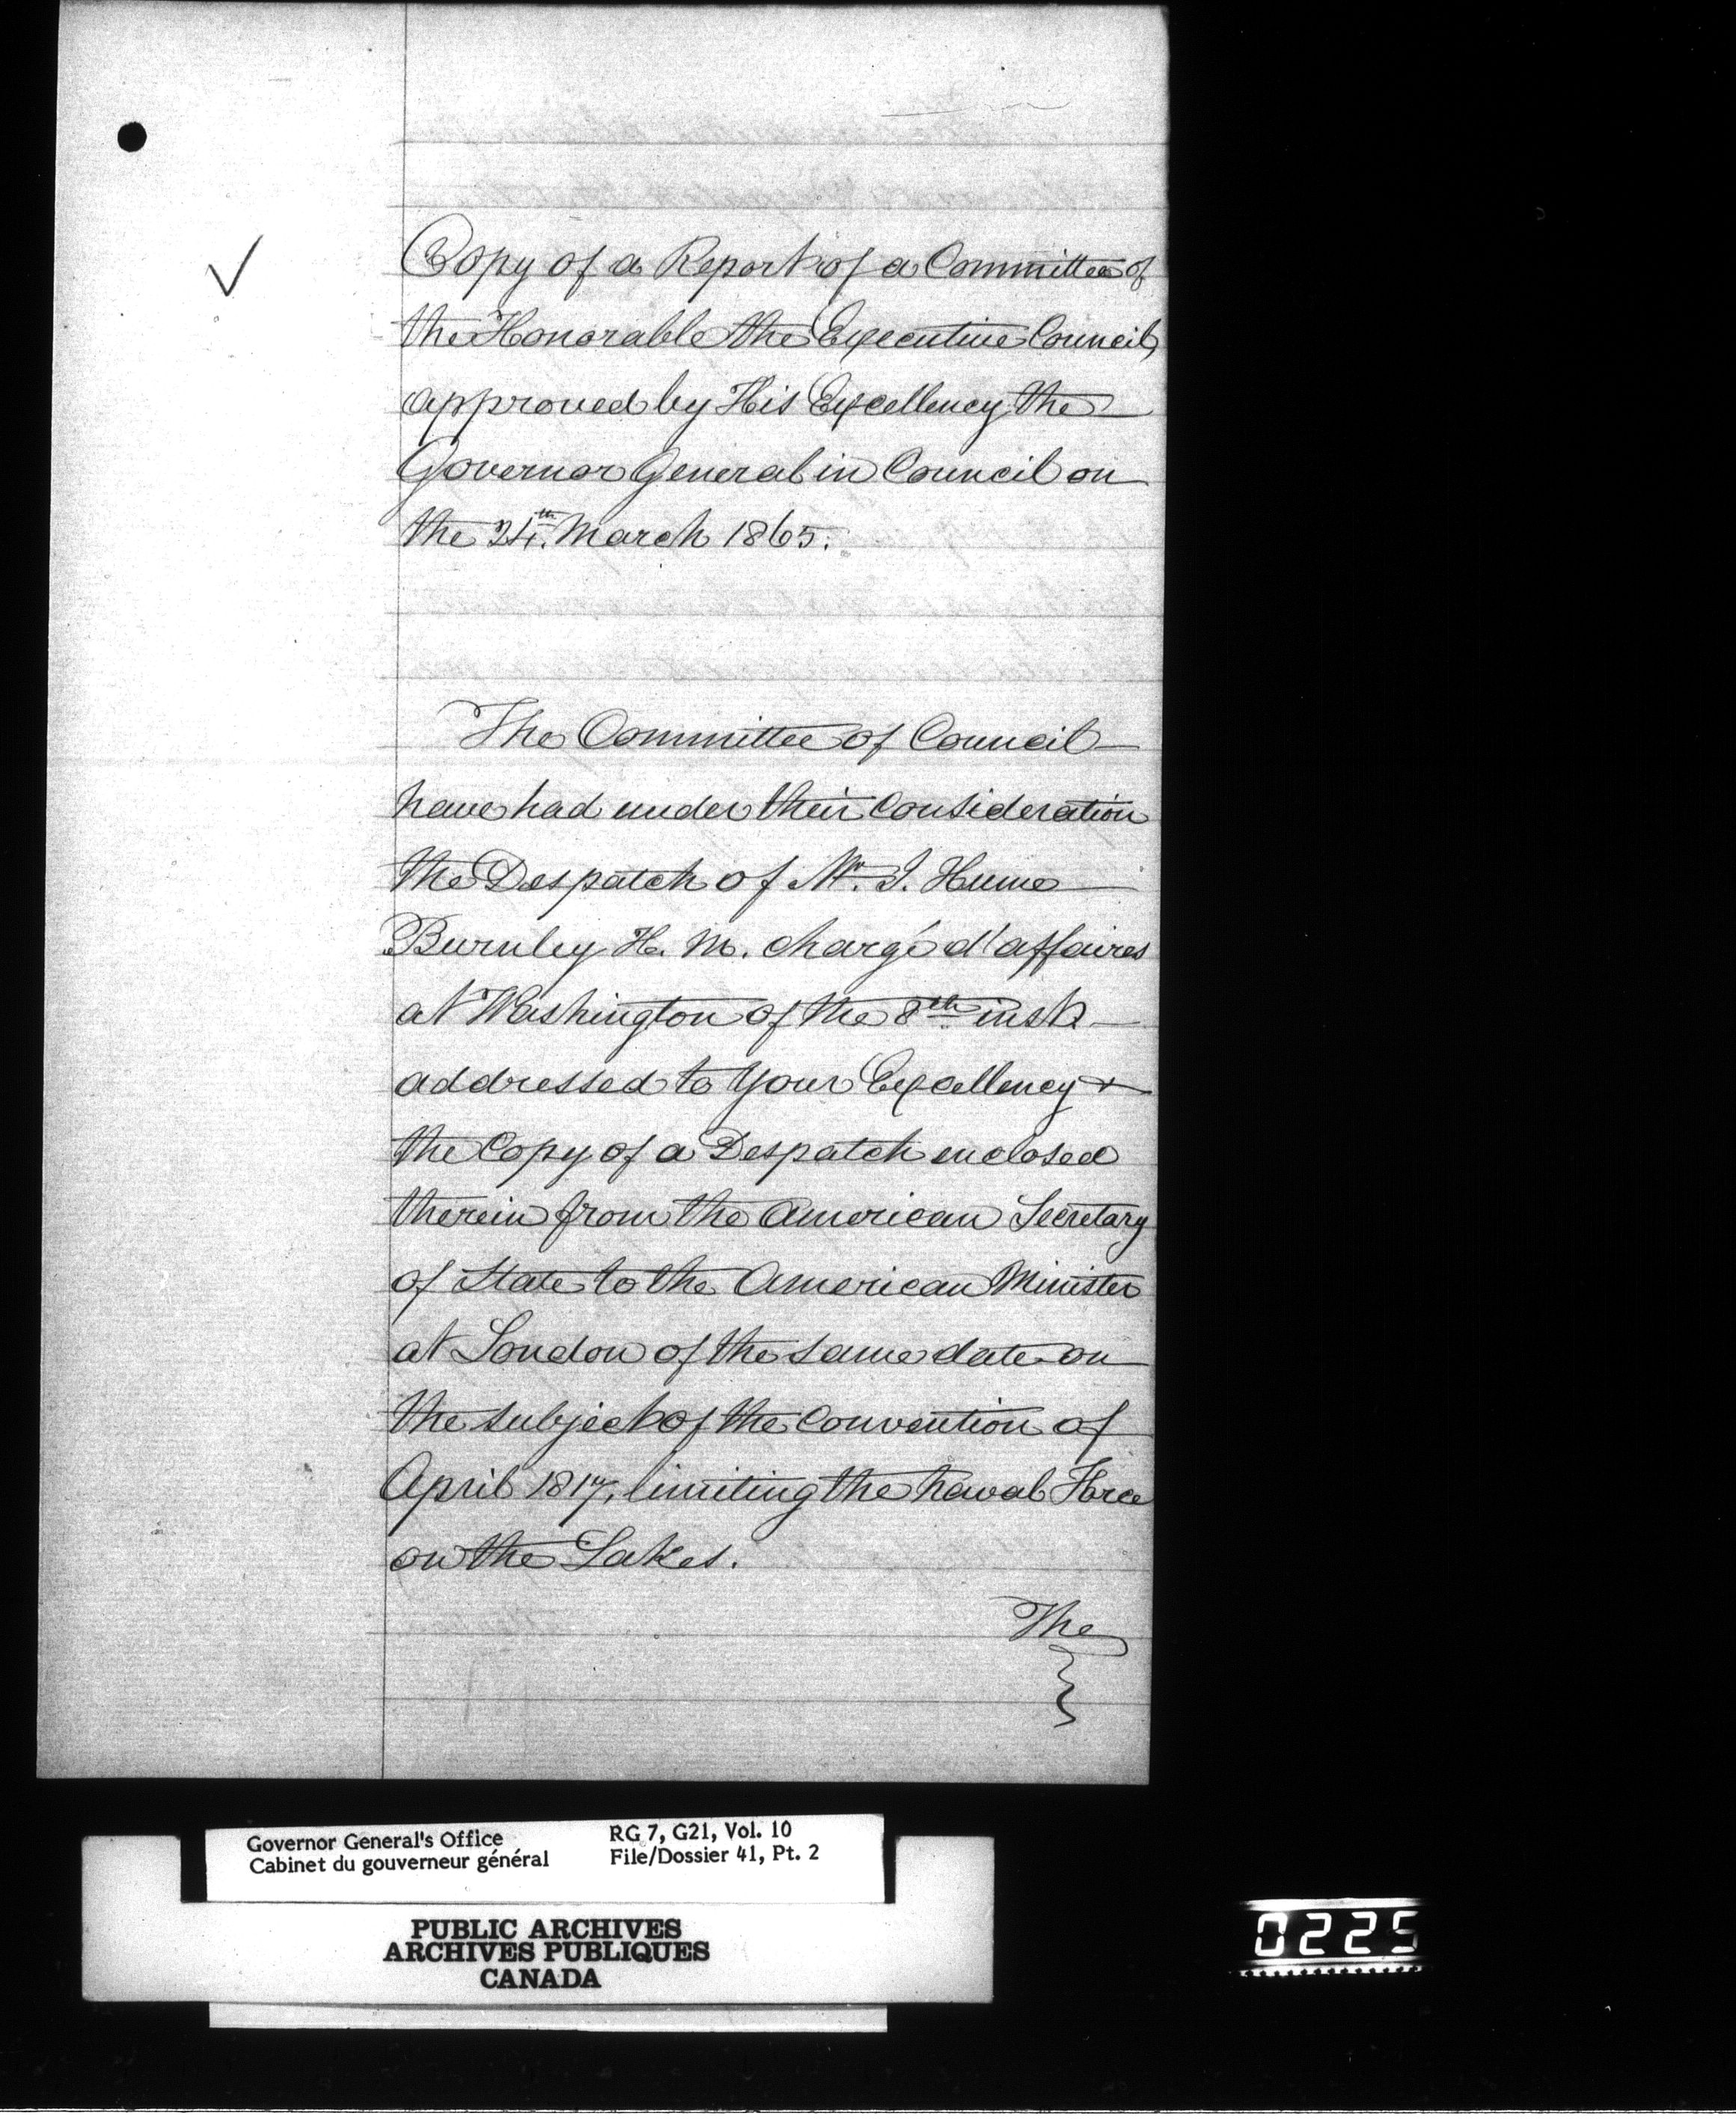 Copy of a Report of a Committee of
the Honorable the Executive Council,
approved by His Excellency the
Governor General in Council on
the 24th. March 1865.
The Committee of Council
have had under their consideration
the Despatch of Mr. J. Hume
Burnley H. M. chargé d'affaires
at Washington of the 8th inst
addressed to Your Excellency &
the Copy of a Despatch enclosed
therein from the American Secretary
of State to the American Minister
at London of the same date on
the subject of the Convention of
April 1817, limiting the Naval Force
on the Lakes.
The
Governor General's Office RG 7, G21, Vol. 10
Cabinet du gouverneur général File/Dossier 41, Pt. 2
PUBLIC ARCHIVES
ARCHIVES PUBLIQUES
CANADA
0225